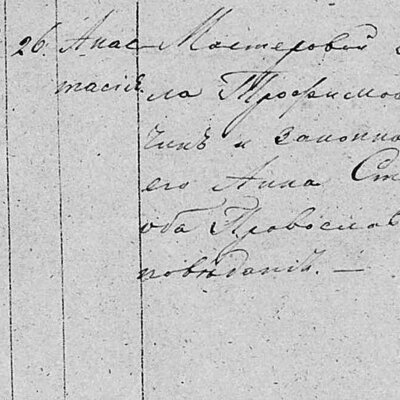 26. Анас- Мастеровой
тасія. ла Трофимов
чинъ и законна
его Анна Ст
оба Православ
повѣданія. —